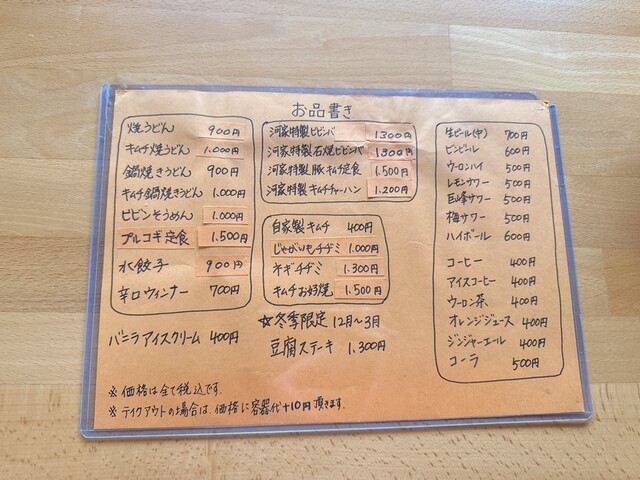 お品書き
焼うどん 900円
キムチ焼うどん 1.000円
鍋焼きうどん 900円
キムチ鍋焼きうどん 1.000円
ビビンそうめん 1.000円
プルコギ定食 1.500円
水餃子 900円
辛口ウィンナー 700円
バニラアイスクリーム 400円
河家特製ビビンバ 1300円
河家特製石焼ビビンバ 1300円
河家特製豚キムチ定食 1.500円
河家特製キムチチャーハン 1.200円
自家製キムチ 400円
じゃがいもチヂミ 1.000円
ネギチヂミ 1.300円
キムチお好焼 1.500円
☆冬季限定 12月〜3月
豆腐ステーキ 1.300円
生ビール(中) 700円
ビンビール 600円
ウーロンハイ 500円
レモンサワー 500円
巨峰サワー 500円
梅サワー 500円
ハイボール 600円
コーヒー 400円
アイスコーヒー 400円
ウーロン茶 400円
オレンジジュース 400円
ジンジャーエール 400円
コーラ 500円
※価格は全て税込です.
※テイクアウトの場合は、価格に容器代+10円頂きます.